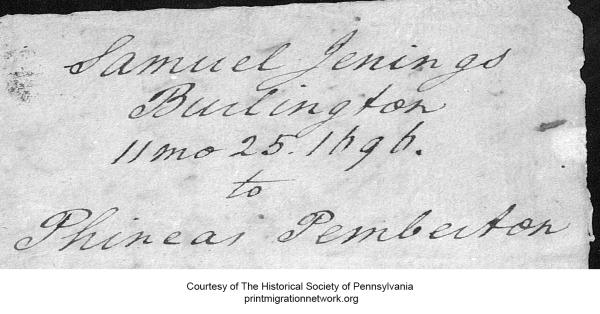 Samuel Jenings
Burlington
11 mo 25. 1696.
to
Phineas Pemberton
Courtesy of The Historical Society of Pennsylvania
printmigrationnetwork.org